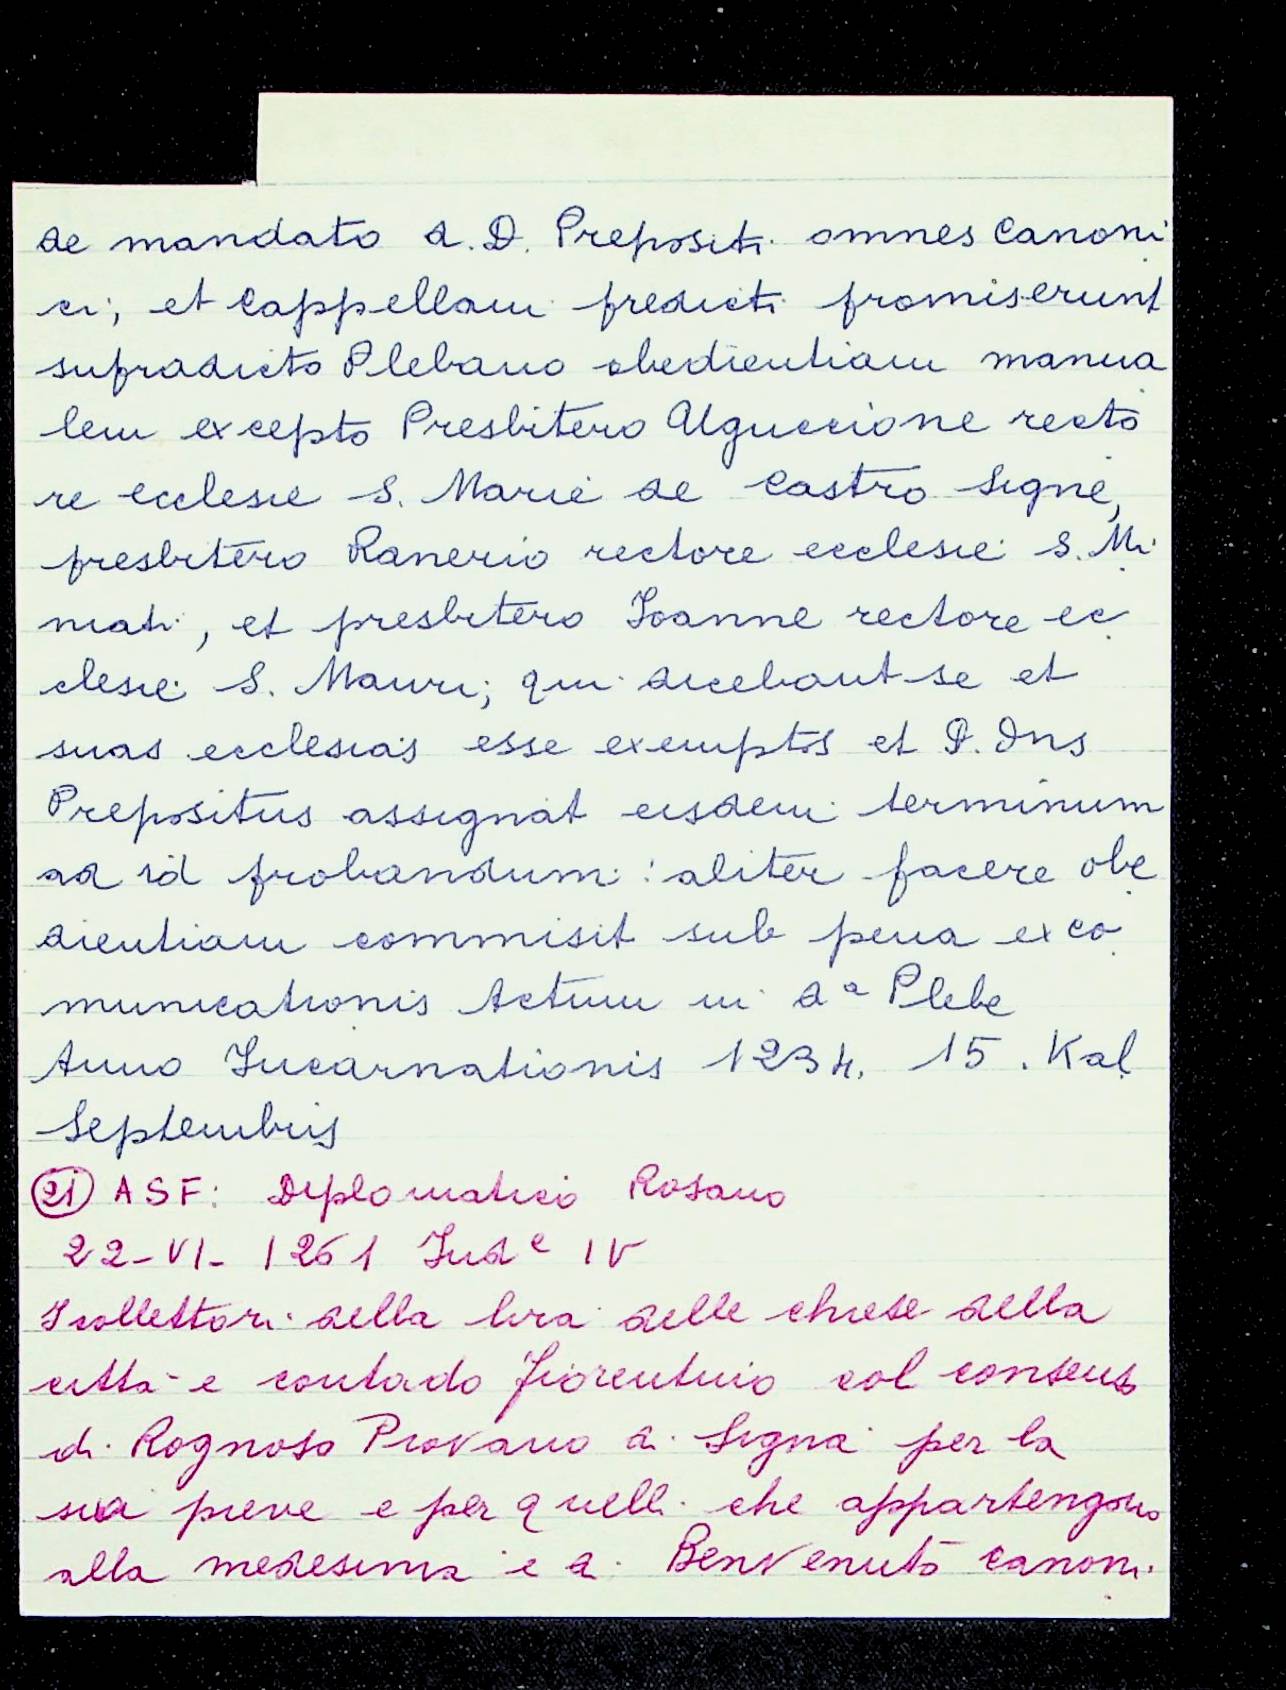 de mandato d. D. Prepositi omnes Canoni
ci, et Cappellani predicti promiserunt
supradicto Plebano obedientiam manua
lem excepto Presbitero Uguccione recto
re ecclesie S. Marie de Castro Signe,
presbitero Ranerio rectore ecclesie S. Mi
niati, et presbitero Joanne rectore ec
clesie S. Mauri; qui dicebant se et
suas ecclesias esse exemptos et P. Dns
Prepositus assignat eisdem terminum
ad id probandum: aliter facere obe
dientiam commisit sub pena exco
municationis Actum in da Plebe
Anno Incarnationis 1234. 15. Kal
Septembris
21 ASF: Diplomatico Rosano
22-VI-1261 Inde IV
I collettori della lira delle chiese della
città e contado fiorentino col consenso
di Rognoso Piovano di Signa per la
sua pieve e per quelli che appartengono
alla medesima e di Benvenuto canoni